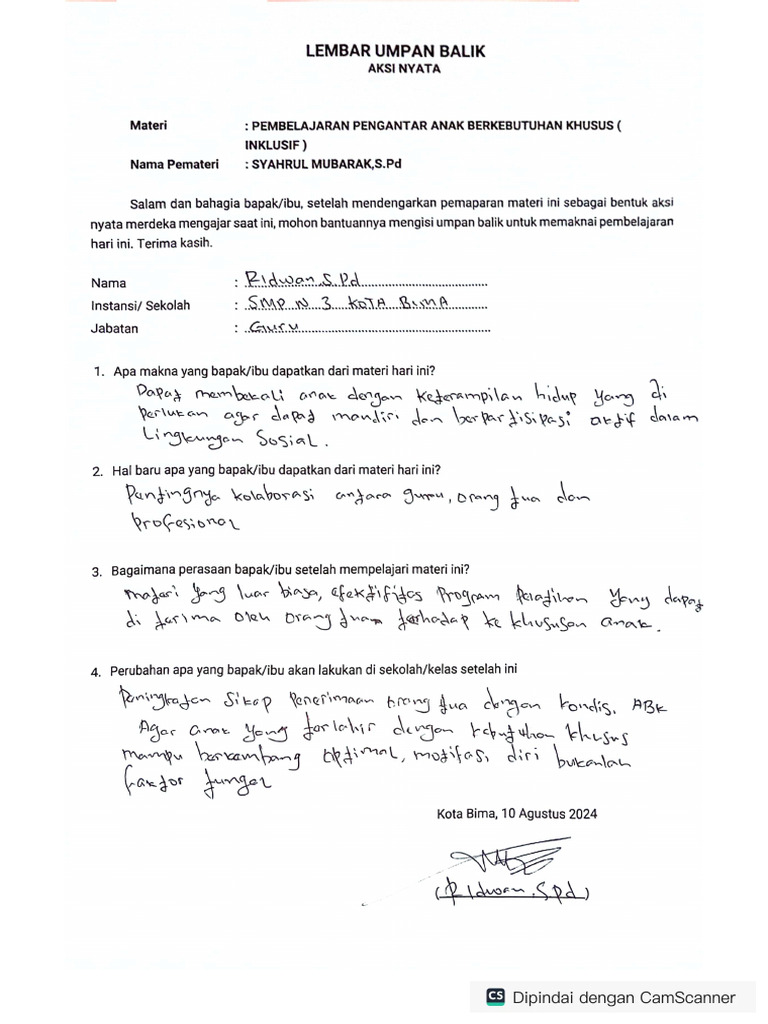 LEMBAR UMPAN BALIK
AKSI NYATA
Materi : PEMBELAJARAN PENGANTAR ANAK BERKEBUTUHAN KHUSUS (
INKLUSIF )
Nama Pemateri : SYAHRUL MUBARAK,S.Pd
Salam dan bahagia bapak/ibu, setelah mendengarkan pemaparan materi ini sebagai bentuk aksi
nyata merdeka mengajar saat ini, mohon bantuannya mengisi umpan balik untuk memaknai pembelajaran
hari ini. Terima kasih.
Nama : Ridwan, S.Pd
Instansi/ Sekolah : SMP N 3 KOTA BIMA
Jabatan : Guru
1. Apa makna yang bapak/ibu dapatkan dari materi hari ini?
Dapat membekali anak dengan keterampilan hidup yang di
perlukan agar dapat mandiri dan berpartisipasi aktif dalam
Lingkungan Sosial.
2. Hal baru apa yang bapak/ibu dapatkan dari materi hari ini?
Pentingnya kolaborasi antara guru, orang tua dan
profesional
3. Bagaimana perasaan bapak/ibu setelah mempelajari materi ini?
Materi yang luar biasa, efektifitas Program Pelatihan yang dapat
di terima oleh orang tua terhadap ke khususan anak.
4. Perubahan apa yang bapak/ibu akan lakukan di sekolah/kelas setelah ini
Peningkatan Sikap Penerimaan orang tua dengan kondisi ABK
Agar anak yang terlahir dengan kebutuhan khusus
mampu berkembang optimal, motifasi diri bukanlah
faktor tunggal
Kota Bima, 10 Agustus 2024
(Ridwan, S.Pd)
CS Dipindai dengan CamScanner